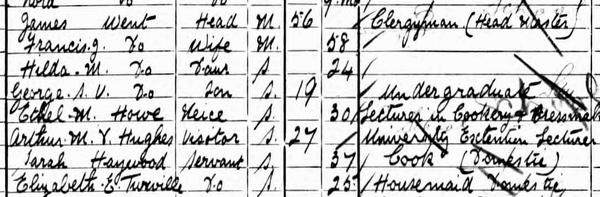 James Went Head M. 56 Clergyman (Head Master)
Francis. J. Do Wife M. 58
Hilda. M. Do Daur S. 24
George. S. V. Do Son S. 19 Undergraduate
Ethel. M. Howe Neice S. 30 Lecturer in Cookery & Dressmak
Arthur M. Y Hughes Visitor S. 27 University Extention Lecturer
Sarah Haywood Servant S. 37 Cook (Domestic)
Elizabeth. E. Turville Do S. 25 Housemaid Domestic